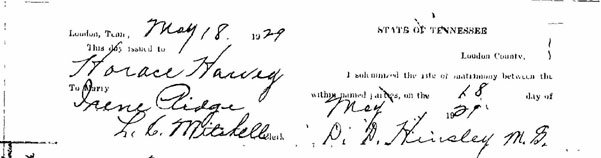 Loudon, Tenn., May 18. 1929
This day issued to
Horace Harvey
To Marry
Irene Ridge
L. C. Mitchell Clerk.
STATE OF TENNESSEE
Loudon County.
I solemnized the rite of matrimony between the
within named parties, on the 18 day of
May 1929
D. D. Hinsley M. G.